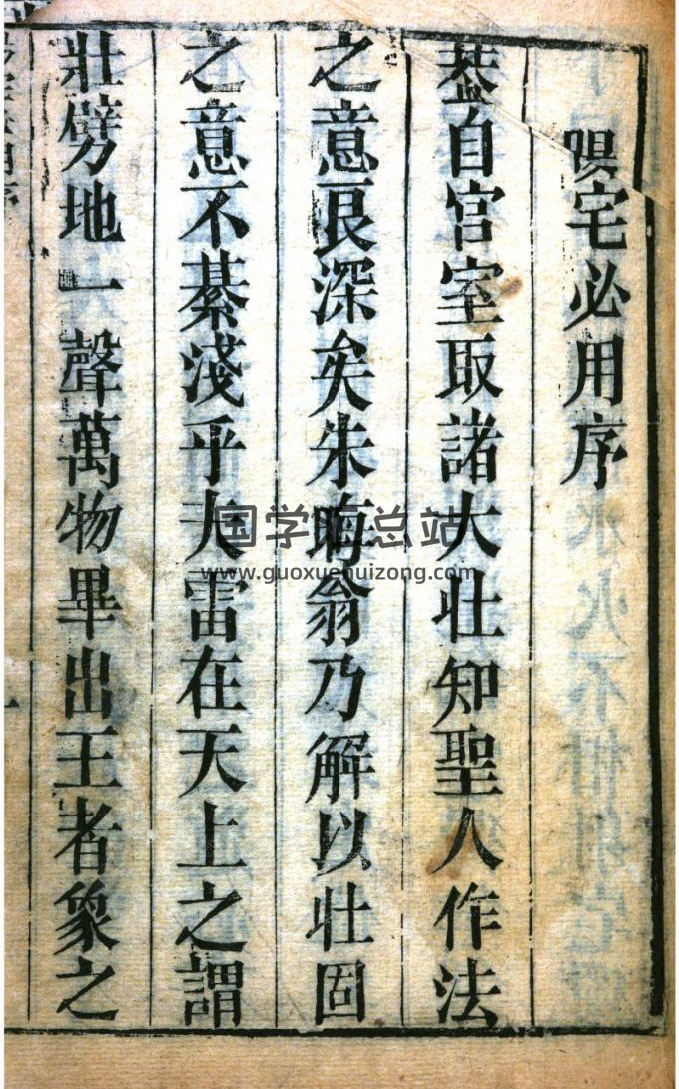 宅必用序
葢自官室取諸大壯知聖人作法
之意良深矣朱晦翁乃解以壯固
之意不綦淺乎夫雷在天上之謂
壯劈地一聲萬物畢出王者象之
国学总站
www.guoxuehuizong.com